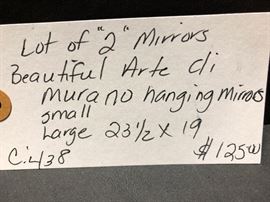 Lot of "2" Mirrors
Beautiful Arte di
Murano hanging Mirrors
small
Large 23 1/2 x 19
C:438 $125.00